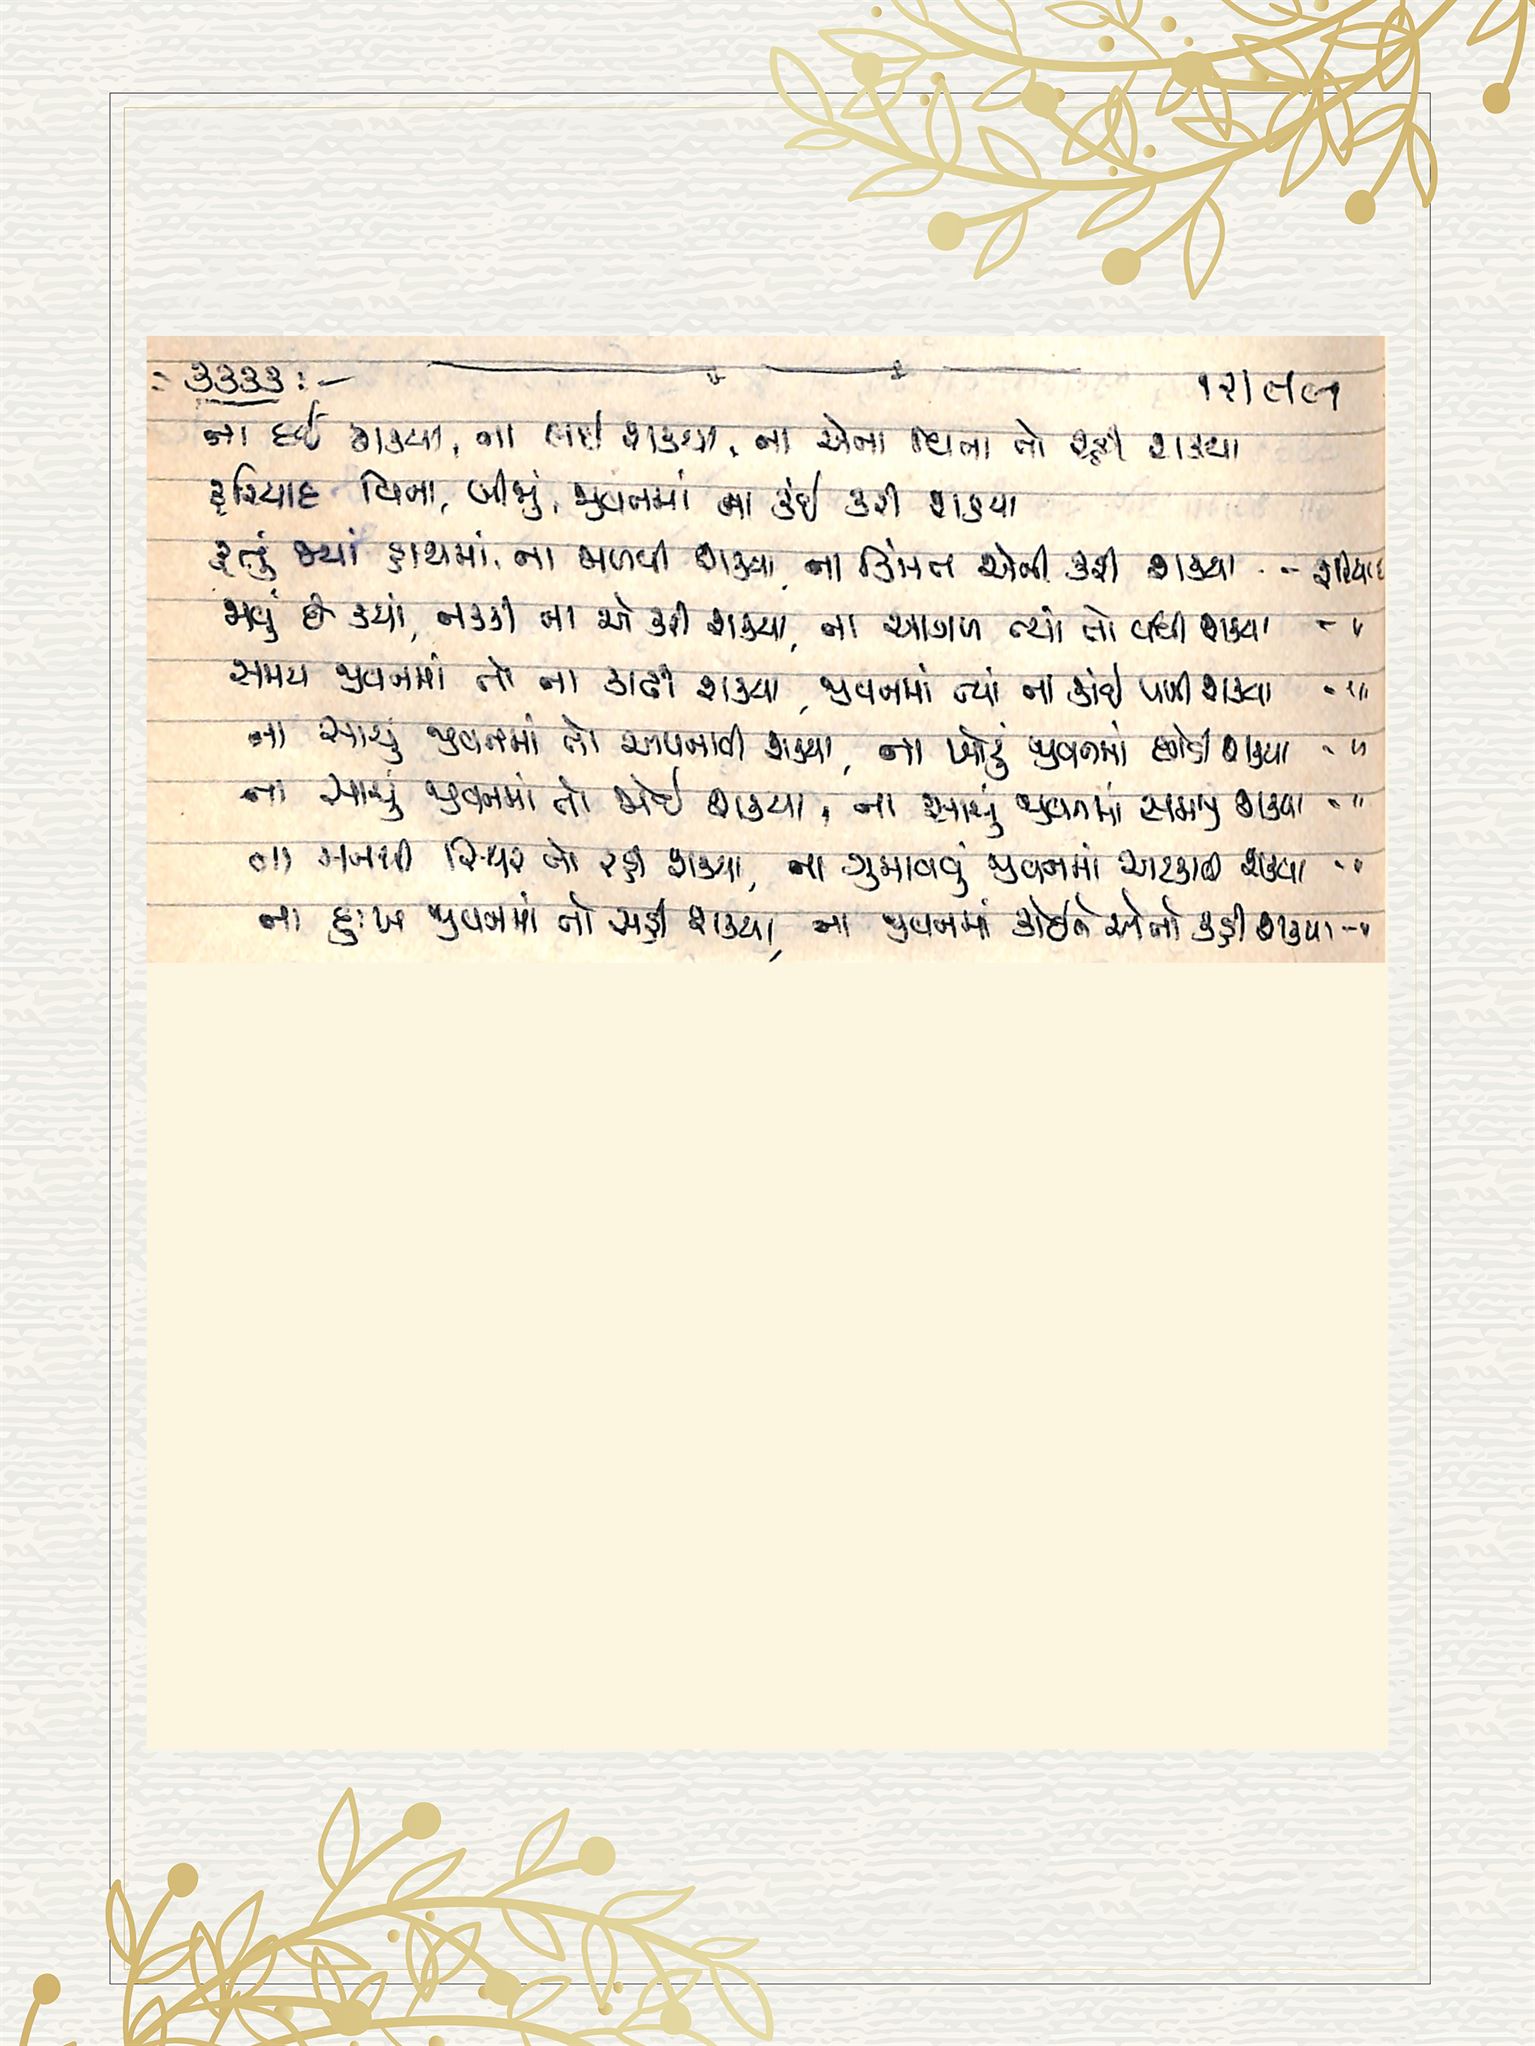 ૩૩૩૩ :-
ના દઈ શક્યા, ના લઈ શક્યા, ના એના વિના તો રહી શક્યા
ફરિયાદ વિના, બીજું, જીવનમાં ના કંઈ કરી શક્યા
હતું જ્યાં હાથમાં, ના મેળવી શક્યા, ના કિંમત એની કરી શક્યા -- ફરિયાદ
જવું છે ક્યાં, નક્કી ના એ કરી શક્યા, ના આગળ ત્યાં તો વધી શક્યા - "
સમય જીવનમાં તો ના કાઢી શક્યા, જીવનમાં ત્યાં ના કાંઈ પામી શક્યા - "
ના સાચું જીવનમાં તો અપનાવી શક્યા, ના ખોટું જીવનમાં છોડી શક્યા - "
ના સાચું જીવનમાં તો જોઈ શક્યા, ના સાચું જીવનમાં સમજી શક્યા - "
ના મનથી સ્થિર તો રહી શક્યા, ના ગુમાવવું જીવનમાં અટકાવી શક્યા - "
ના દુઃખ જીવનમાં તો સહી શક્યા, ના જીવનમાં કોઈને એનો કહી શક્યા - "